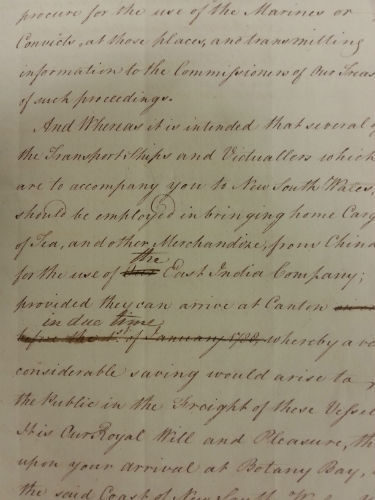 procure for the use of the Marines or
Convicts, at those places, and transmitting
information to the Commissioners of Our Treas
of such proceedings.
And Whereas it is intended that several
the Transport Ships and Victuallers which
are to accompany you to New South Wales,
should be employed in bringing home Carg
of Tea, and other Merchandize, from China
the
for the use of East India Company;
provided they can arrive at Canton
in due time
before the 1st. of January 1788, whereby a
considerable saving would arise to
the Public in the Freight of these Vessel
It is Our Royal Will and Pleasure, th
upon your arrival at Botany Bay,
the said Coast of New South